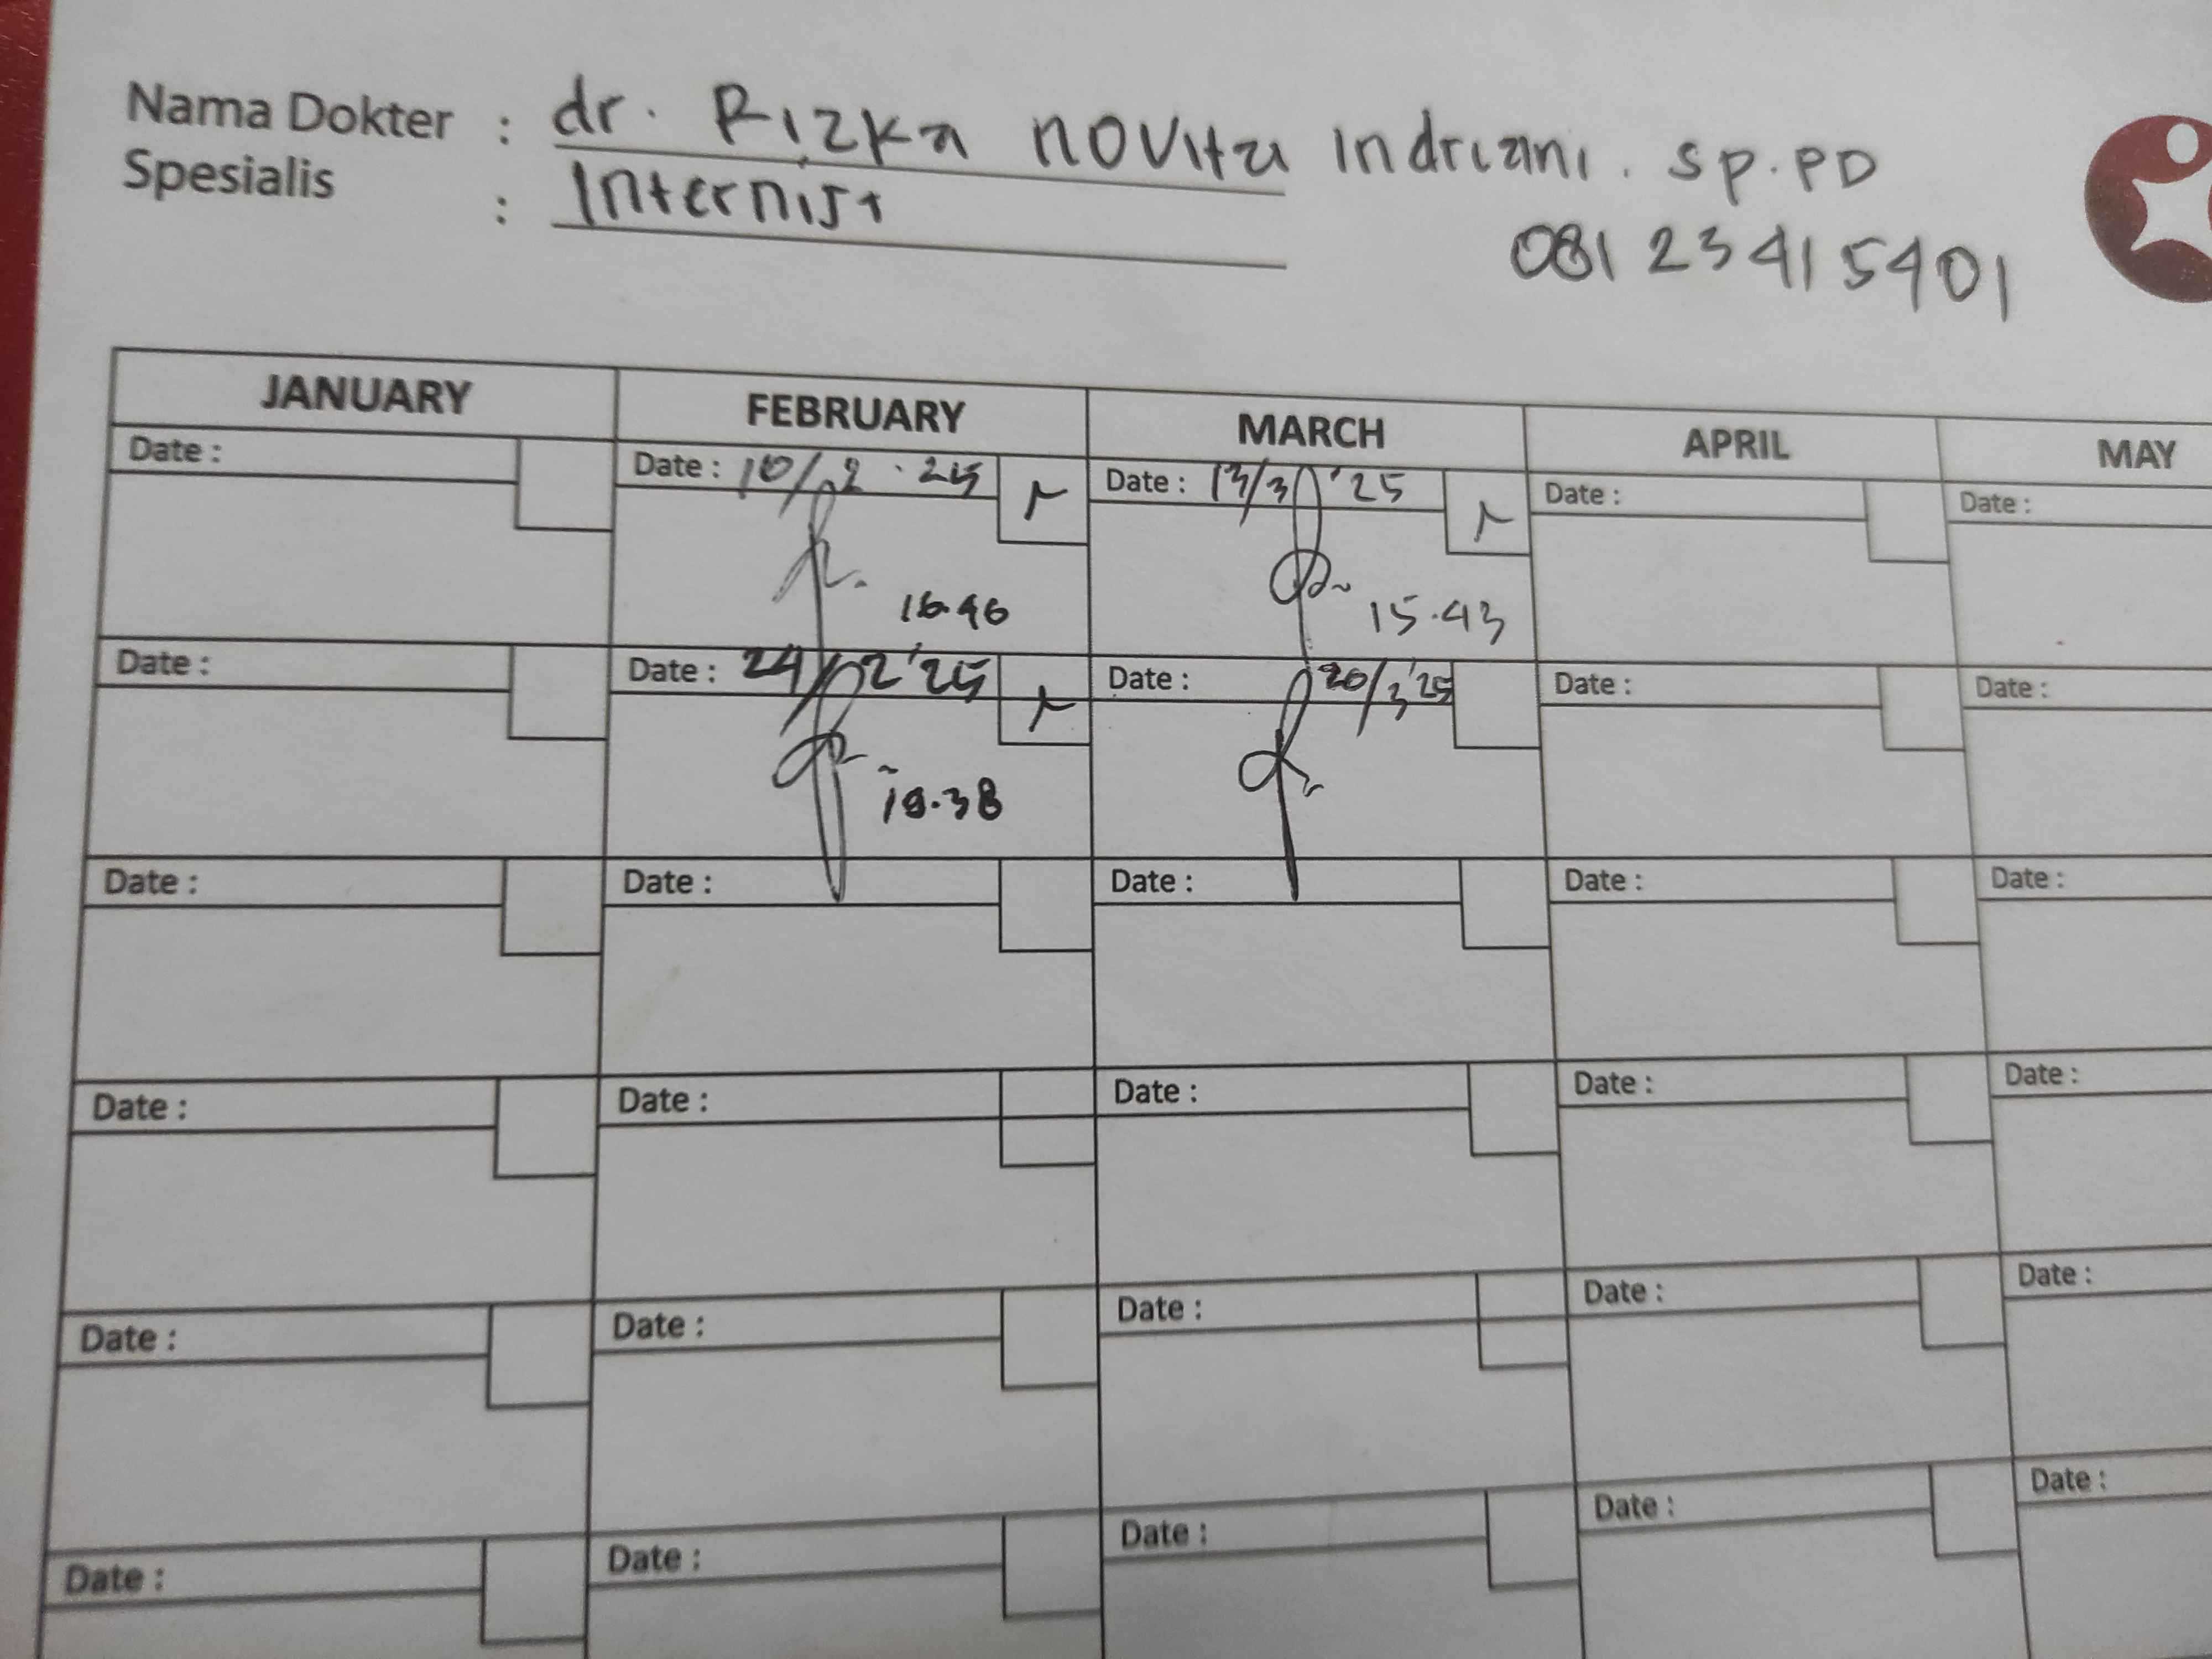 Nama Dokter : dr. Rizka Novita Indriani. Sp.PD
Spesialis : Internist
081 23415401
JANUARY FEBRUARY MARCH APRIL MAY
Date : Date : 10/2 '25 Date : 13/3 '25 Date : Date :
15.43
Date : Date : 24/02 '25 Date : 20/3 '25 Date : Date :
Date : Date : Date : Date : Date :
Date : Date : Date : Date : Date :
Date : Date : Date : Date : Date :
Date : Date : Date : Date : Date :